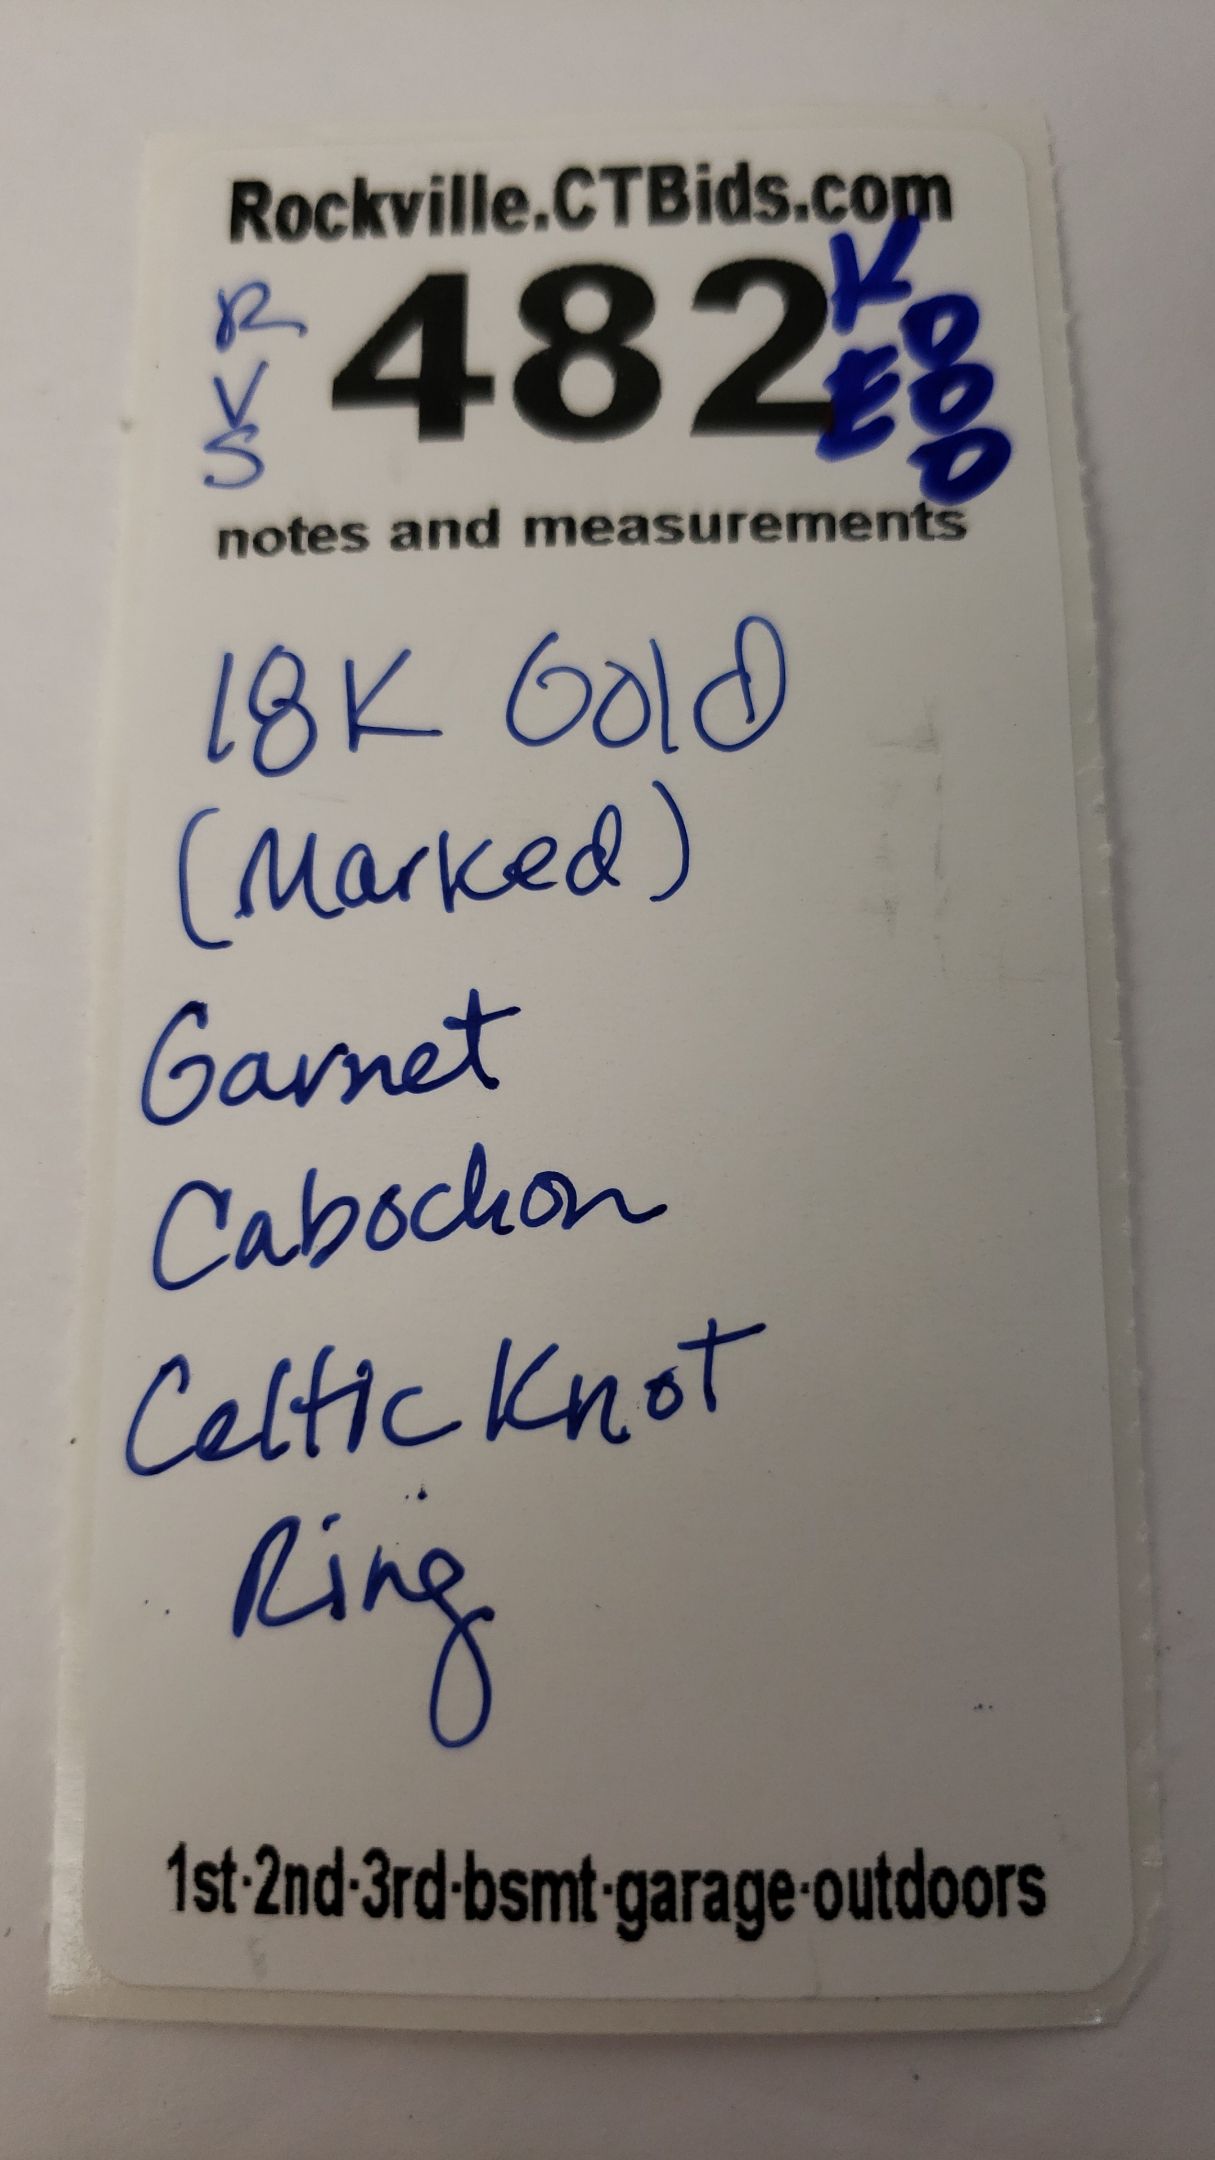 Rockville.CTBids.com
R
V
S
482
K
E
notes and measurements
18K Gold
(Marked)
Garnet
Cabochon
Celtic Knot
Ring
1st·2nd·3rd·bsmt·garage·outdoors